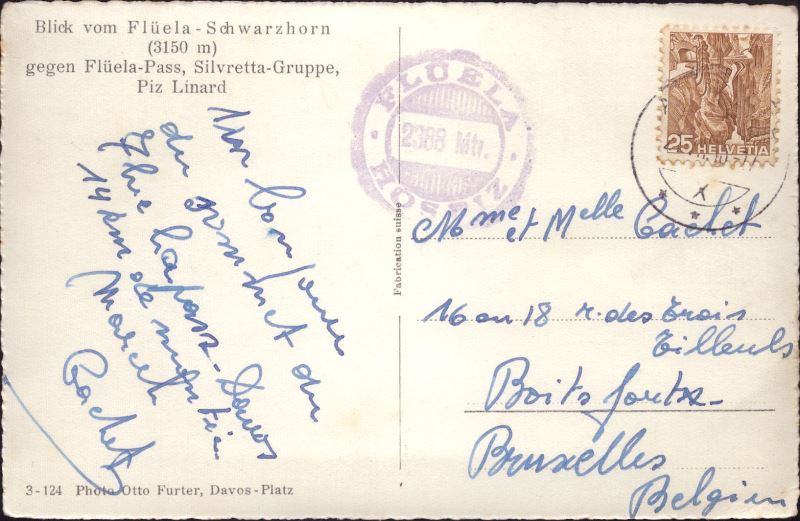 Blick vom Flüela-Schwarzhorn
(3150 m)
gegen Flüela-Pass, Silvretta-Gruppe,
Piz Linard
Un bonjour
du sommet du
14 km de montée
Marcel
Cachet
3-124 Photo Otto Furter, Davos-Platz
Fabrication suisse
FLÜELA
2388 Mtr.
HOSPIZ
25 HELVETIA
Mme et Melle Cachet
16 ou 18 r. des trois
Tilleuls
Boitsfortx
Bruxelles
Belgien